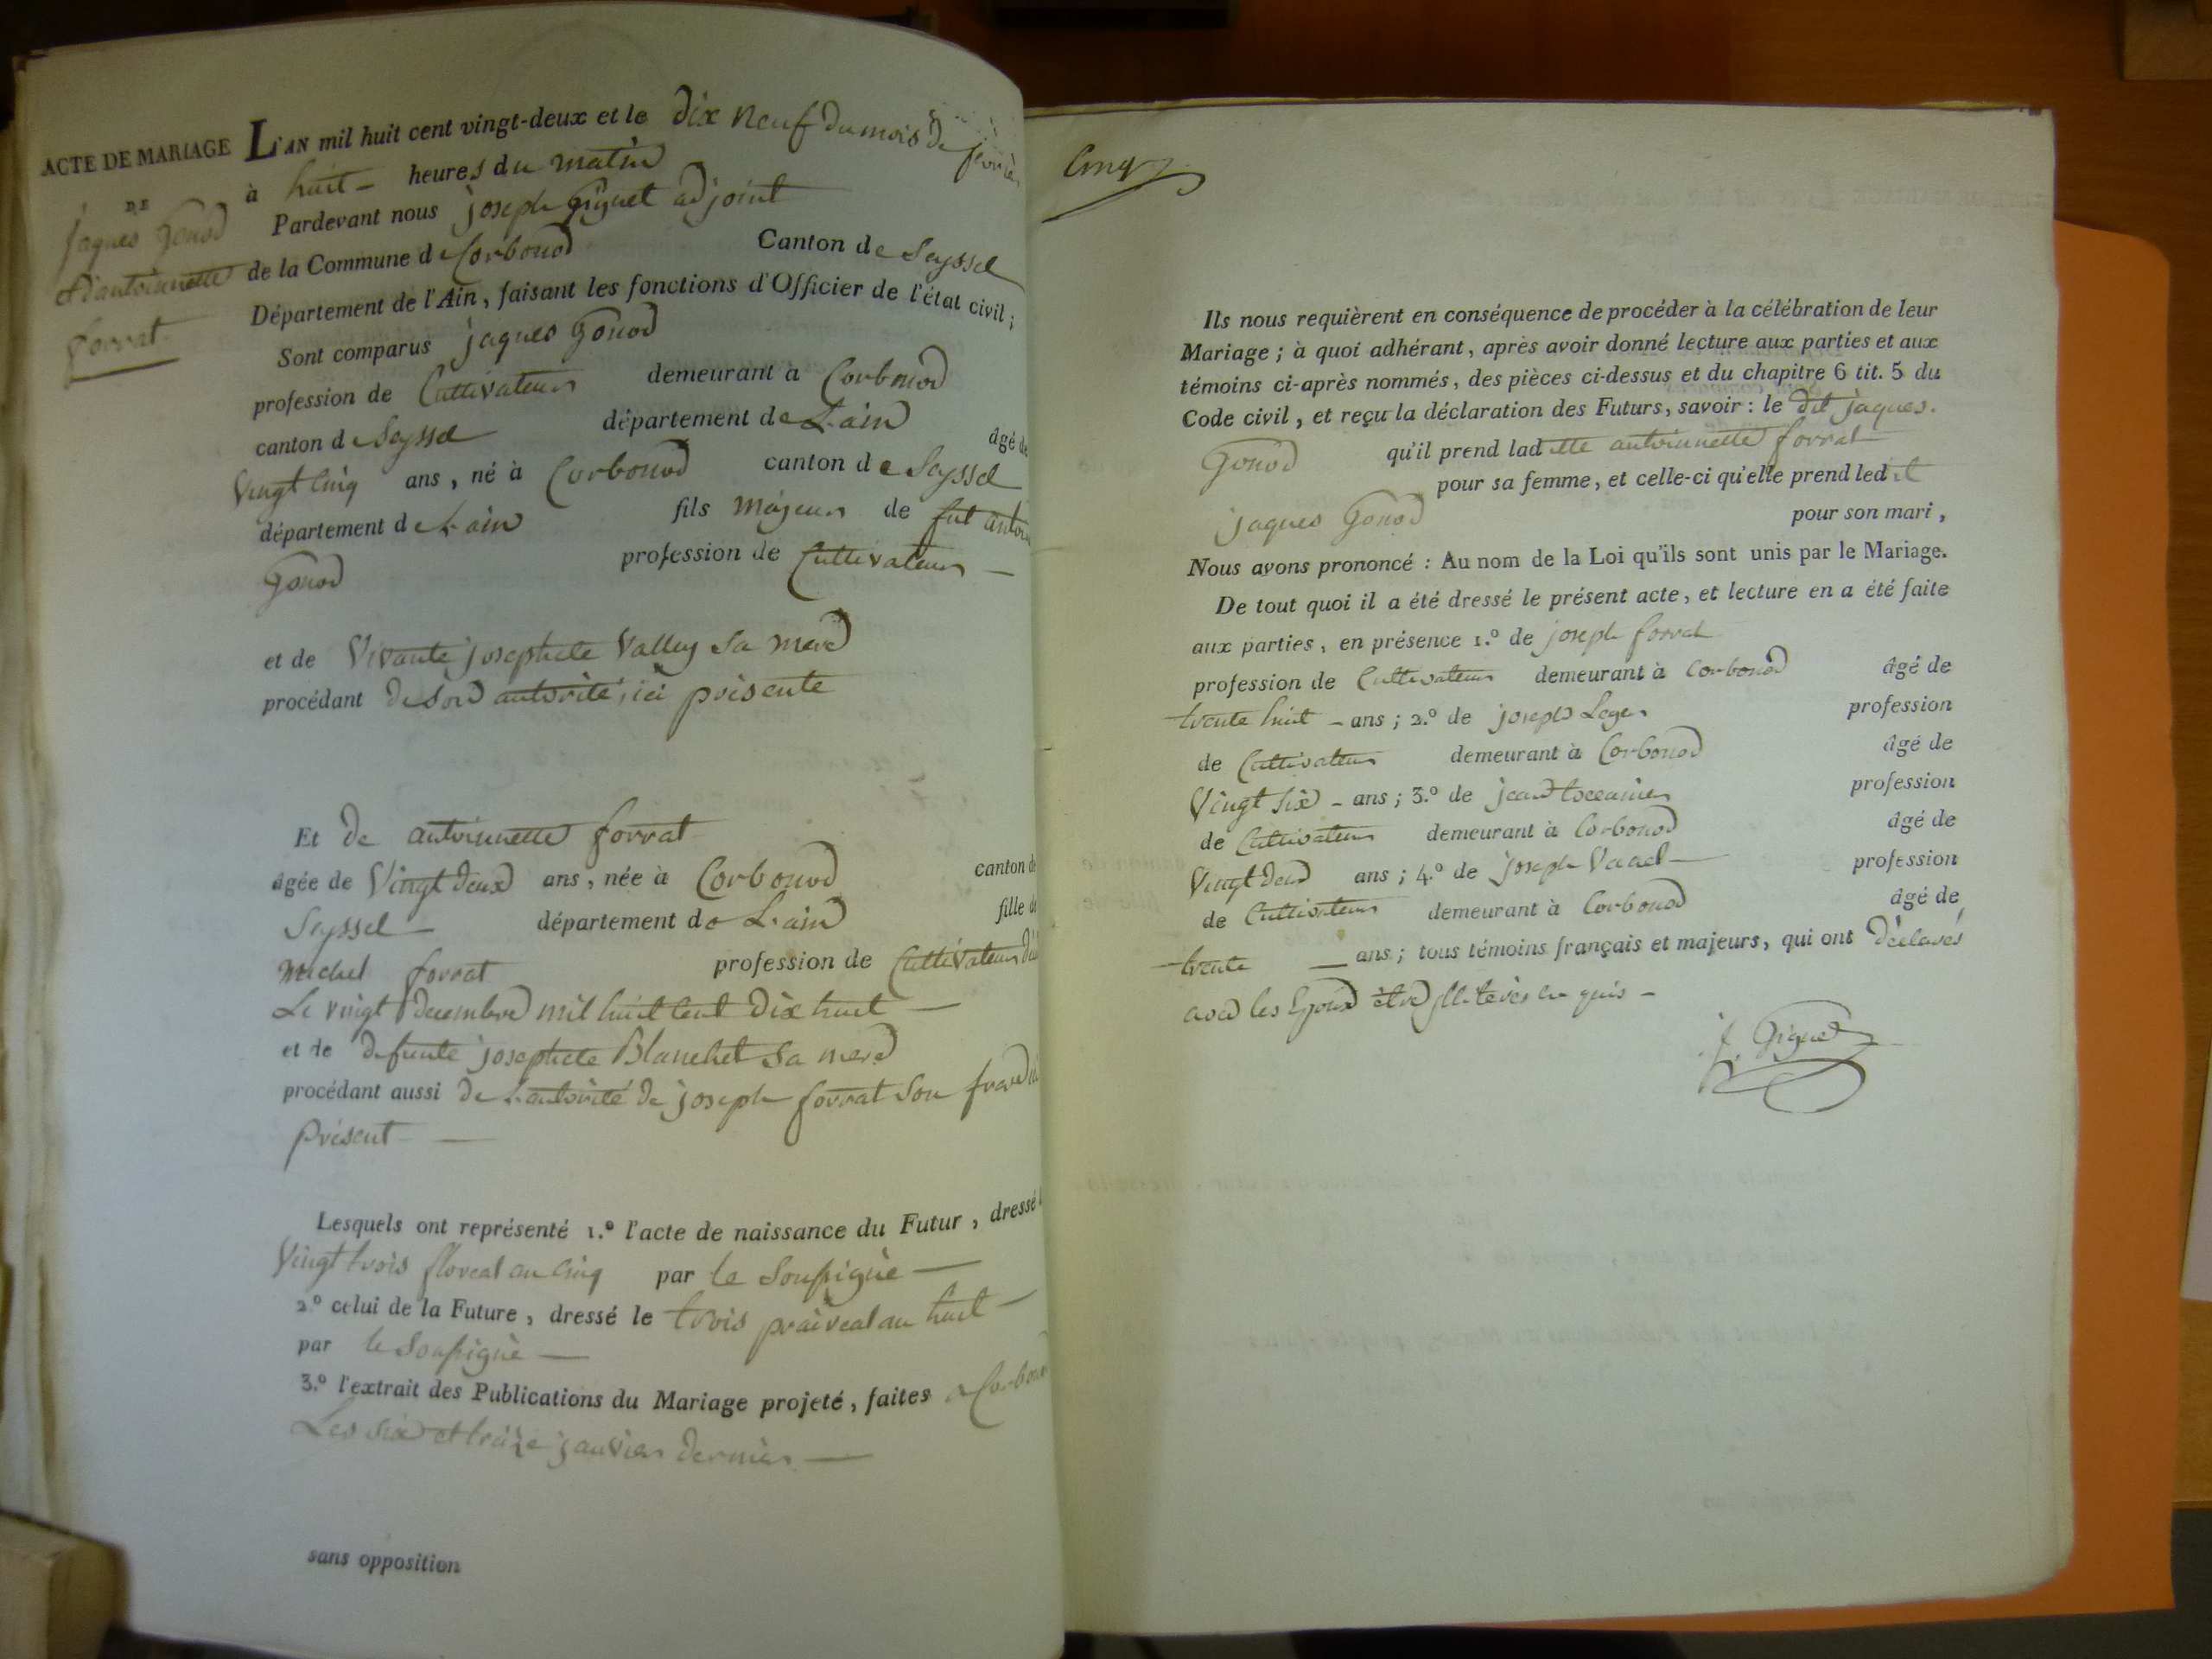 ACTE DE MARIAGE
DE
jaques Gonod
et d'antoinette
forrat
L'AN mil huit cent vingt-deux et le dix neuf du mois de fevrier
à huit heures du matin
Pardevant nous joseph Giguet adjoint
de la Commune de Corbonod Canton de Seyssel
Département de l'Ain, faisant les fonctions d'Officier de l'état civil;
Sont comparus jaques Gonod
profession de Cultivateur demeurant à Corbonod
canton de Seyssel département de L'ain âgé de
Vingt Cinq ans, né à Corbonod canton de Seyssel
département de L'ain fils majeur de fut
Gonod profession de Cultivateur
et de Vivante josephete Valley sa mere
procédant de son autorité, ici présente
Et de antoinette forrat
âgée de Vingt deux ans, née à Corbonod canton de
Seyssel département de L'ain fille de
michel forrat profession de Cultivateur
Le vingt decembre mil huit cent dix huit
et de defunte josephete Blanchet sa mere
procédant aussi de L'autorité de joseph forrat son frere
présent
Lesquels ont représenté 1.º l'acte de naissance du Futur, dressé
Vingt trois floreal an cinq par le Soussigné
2.º celui de la Future, dressé le trois praireal an huit
par le Soussigné
3.º l'extrait des Publications du Mariage projeté, faites a Corbonod
Les six et treize janvier dernier
sans opposition
Cinq
Ils nous requièrent en conséquence de procéder à la célébration de leur
Mariage; à quoi adhérant, après avoir donné lecture aux parties et aux
témoins ci-après nommés, des pièces ci-dessus et du chapitre 6 tit. 5 du
Code civil, et reçu la déclaration des Futurs, savoir: le dit jaques
Gonod qu'il prend ladette antoinette forrat
pour sa femme, et celle-ci qu'elle prend ledit
jaques Gonod pour son mari,
Nous avons prononcé: Au nom de la Loi qu'ils sont unis par le Mariage.
De tout quoi il a été dressé le présent acte, et lecture en a été faite
aux parties, en présence 1.º de joseph forrat
profession de Cultivateur demeurant à Corbonod âgé de
trente huit ans; 2.º de joseph Leger profession
de Cultivateur demeurant à Corbonod âgé de
Vingt six ans; 3.º de jean profession
de Cultivateur demeurant à Corbonod âgé de
Vingt deux ans; 4.º de joseph profession
de Cultivateur demeurant à Corbonod âgé de
trente ans; tous témoins français et majeurs, qui ont déclarés
les Epoux être
j. Giguet